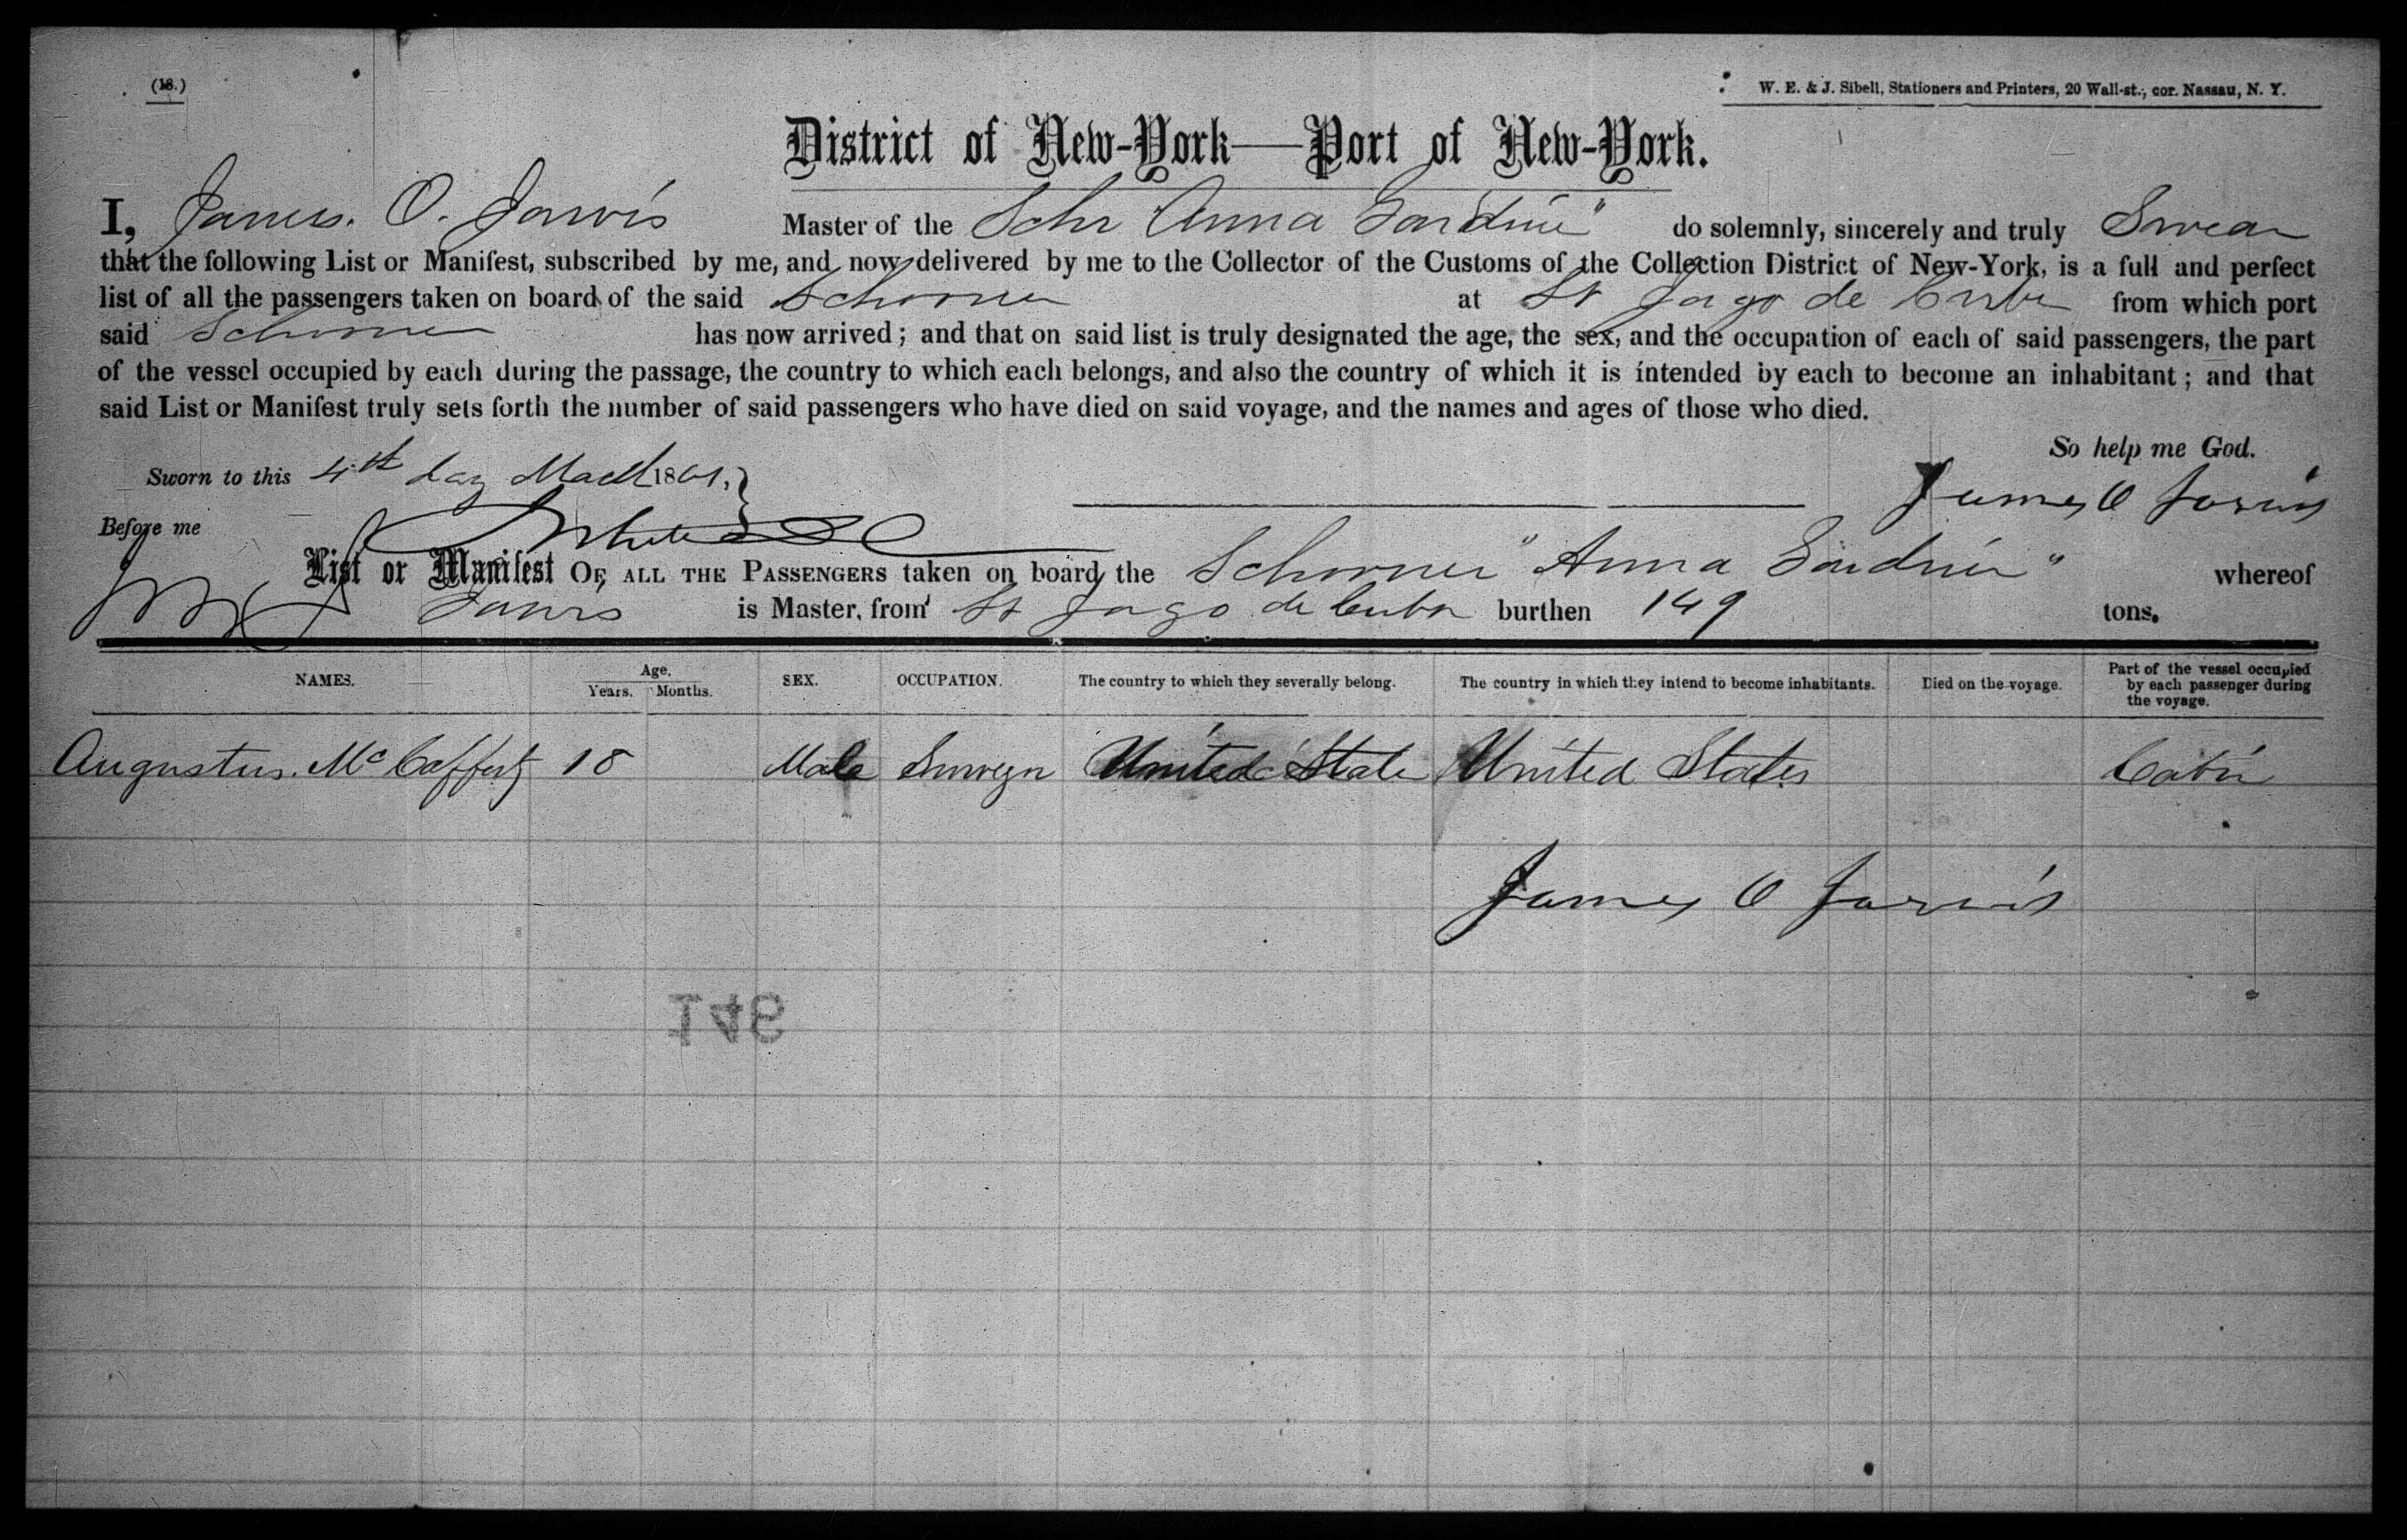 (18.)
W. E. & J. Sibell, Stationers and Printers, 20 Wall-st., cor. Nassau, N. Y.
District of New-York—Port of New-York.
I, James. O. Jarvis Master of the Schr "Anna Gardiner" do solemnly, sincerely and truly Swear
that the following List or Manifest, subscribed by me, and now delivered by me to the Collector of the Customs of the Collection District of New-York, is a full and perfect
list of all the passengers taken on board of the said Schooner at St Jago de Cuba from which port
said Schooner has now arrived; and that on said list is truly designated the age, the sex, and the occupation of each of said passengers, the part
of the vessel occupied by each during the passage, the country to which each belongs, and also the country of which it is intended by each to become an inhabitant; and that
said List or Manifest truly sets forth the number of said passengers who have died on said voyage, and the names and ages of those who died.
So help me God.
Sworn to this 4th day March 1861.
James O Jarvis
Before me
List or Manifest OF ALL THE PASSENGERS taken on board the Schooner "Anna Gardiner" whereof
Jarvis is Master, from St Jago de Cuba burthen 149 tons.
NAMES. Age. Years. Months. SEX. OCCUPATION. The country to which they severally belong. The country in which they intend to become inhabitants. Died on the voyage. Part of the vessel occupied by each passenger during the voyage.
Augustus. McCafferty 18 Male United State United States Cabin
James O Jarvis
146